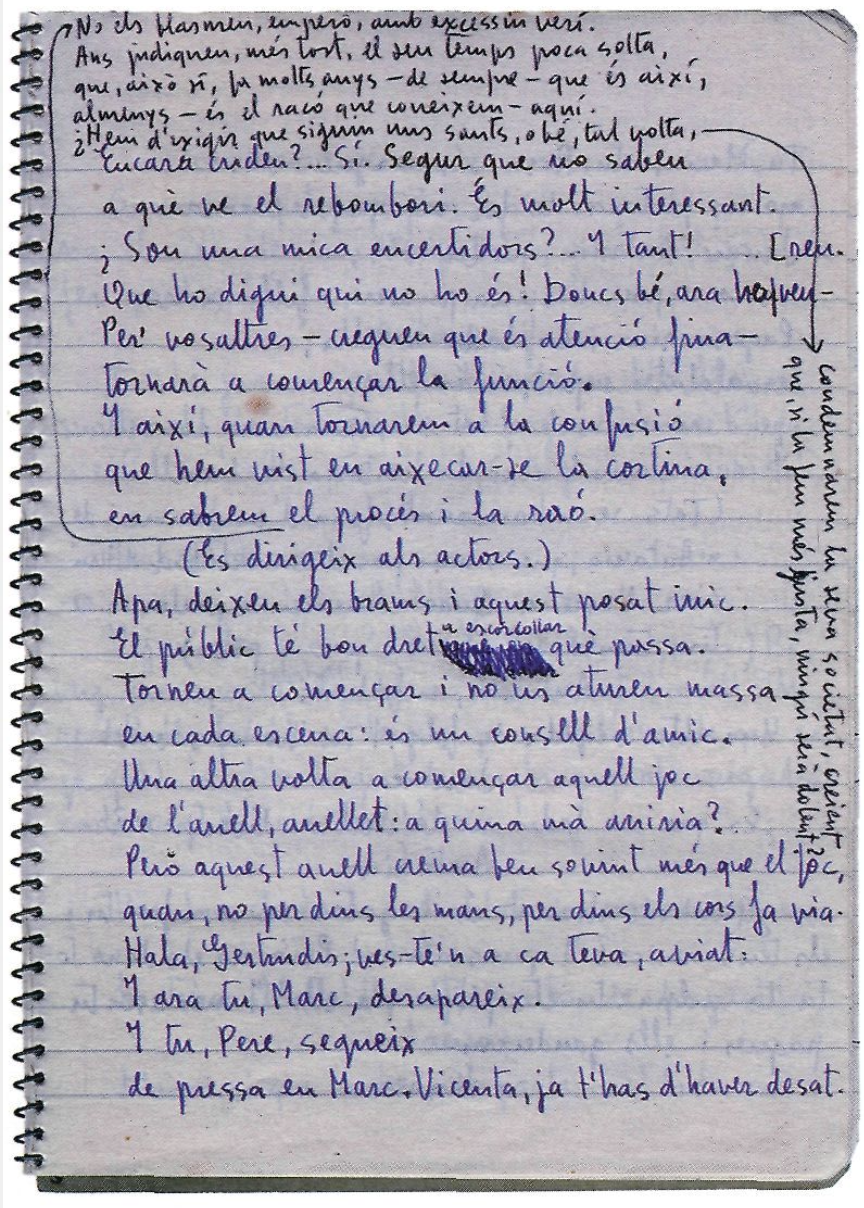 No els blasmeu, emperò, amb excessiu verí.
Ans judiqueu, més tost, el seu temps poca solta,
que, això sí, fa molts anys – de sempre – que és així,
almenys – és el racó que coneixem – aquí.
¿Hem d'exigir que siguin uns sants, o bé, tal volta,
condemnarem la seva societat, creient
que, si la fem més justa, ningú serà dolent?
Encara criden?... Sí. Segur que no saben
a què ve el rebombori. És molt interessant.
¿Son una mica encertidors?... I tant!
Que ho digui qui no ho és! Doncs bé, ara ho veu-
... [reu.
Per vosaltres – cregueu que és atenció fina –
tornarà a començar la funció.
I així, quan tornarem a la confusió
que hem vist en aixecar-se la cortina,
en sabrem el procés i la raó.
(Es dirigeix als actors.)
Apa, deixeu els brams i aquest posat inic.
El públic té bon dret a escorcollar què passa.
Torneu a començar i no us atureu massa
en cada escena: és un consell d'amic.
Una altra volta a començar aquell joc
de l'anell, anellet: a quina mà aniria?
Però aquest anell crema ben sovint més que el foc,
quan, no per dins les mans, per dins els cors fa via.
Hala, Gertrudis; ves-te'n a ca teva, aviat.
I ara tu, Marc, desapareix.
I tu, Pere, segueix
de pressa en Marc. Vicenta, ja t'has d'haver desat.